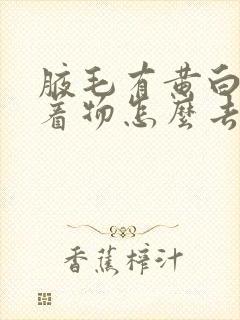 腋毛有黄白
着物怎麼去
香蕉榨汁